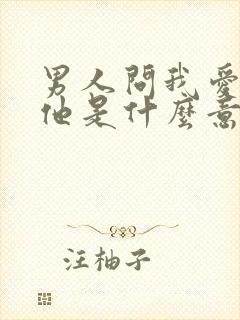 男人問我愛
他是什麼意
汪柚子